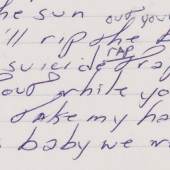 the sun out your
'll rip the
suicide rap
out while yo
take my ha
baby we w